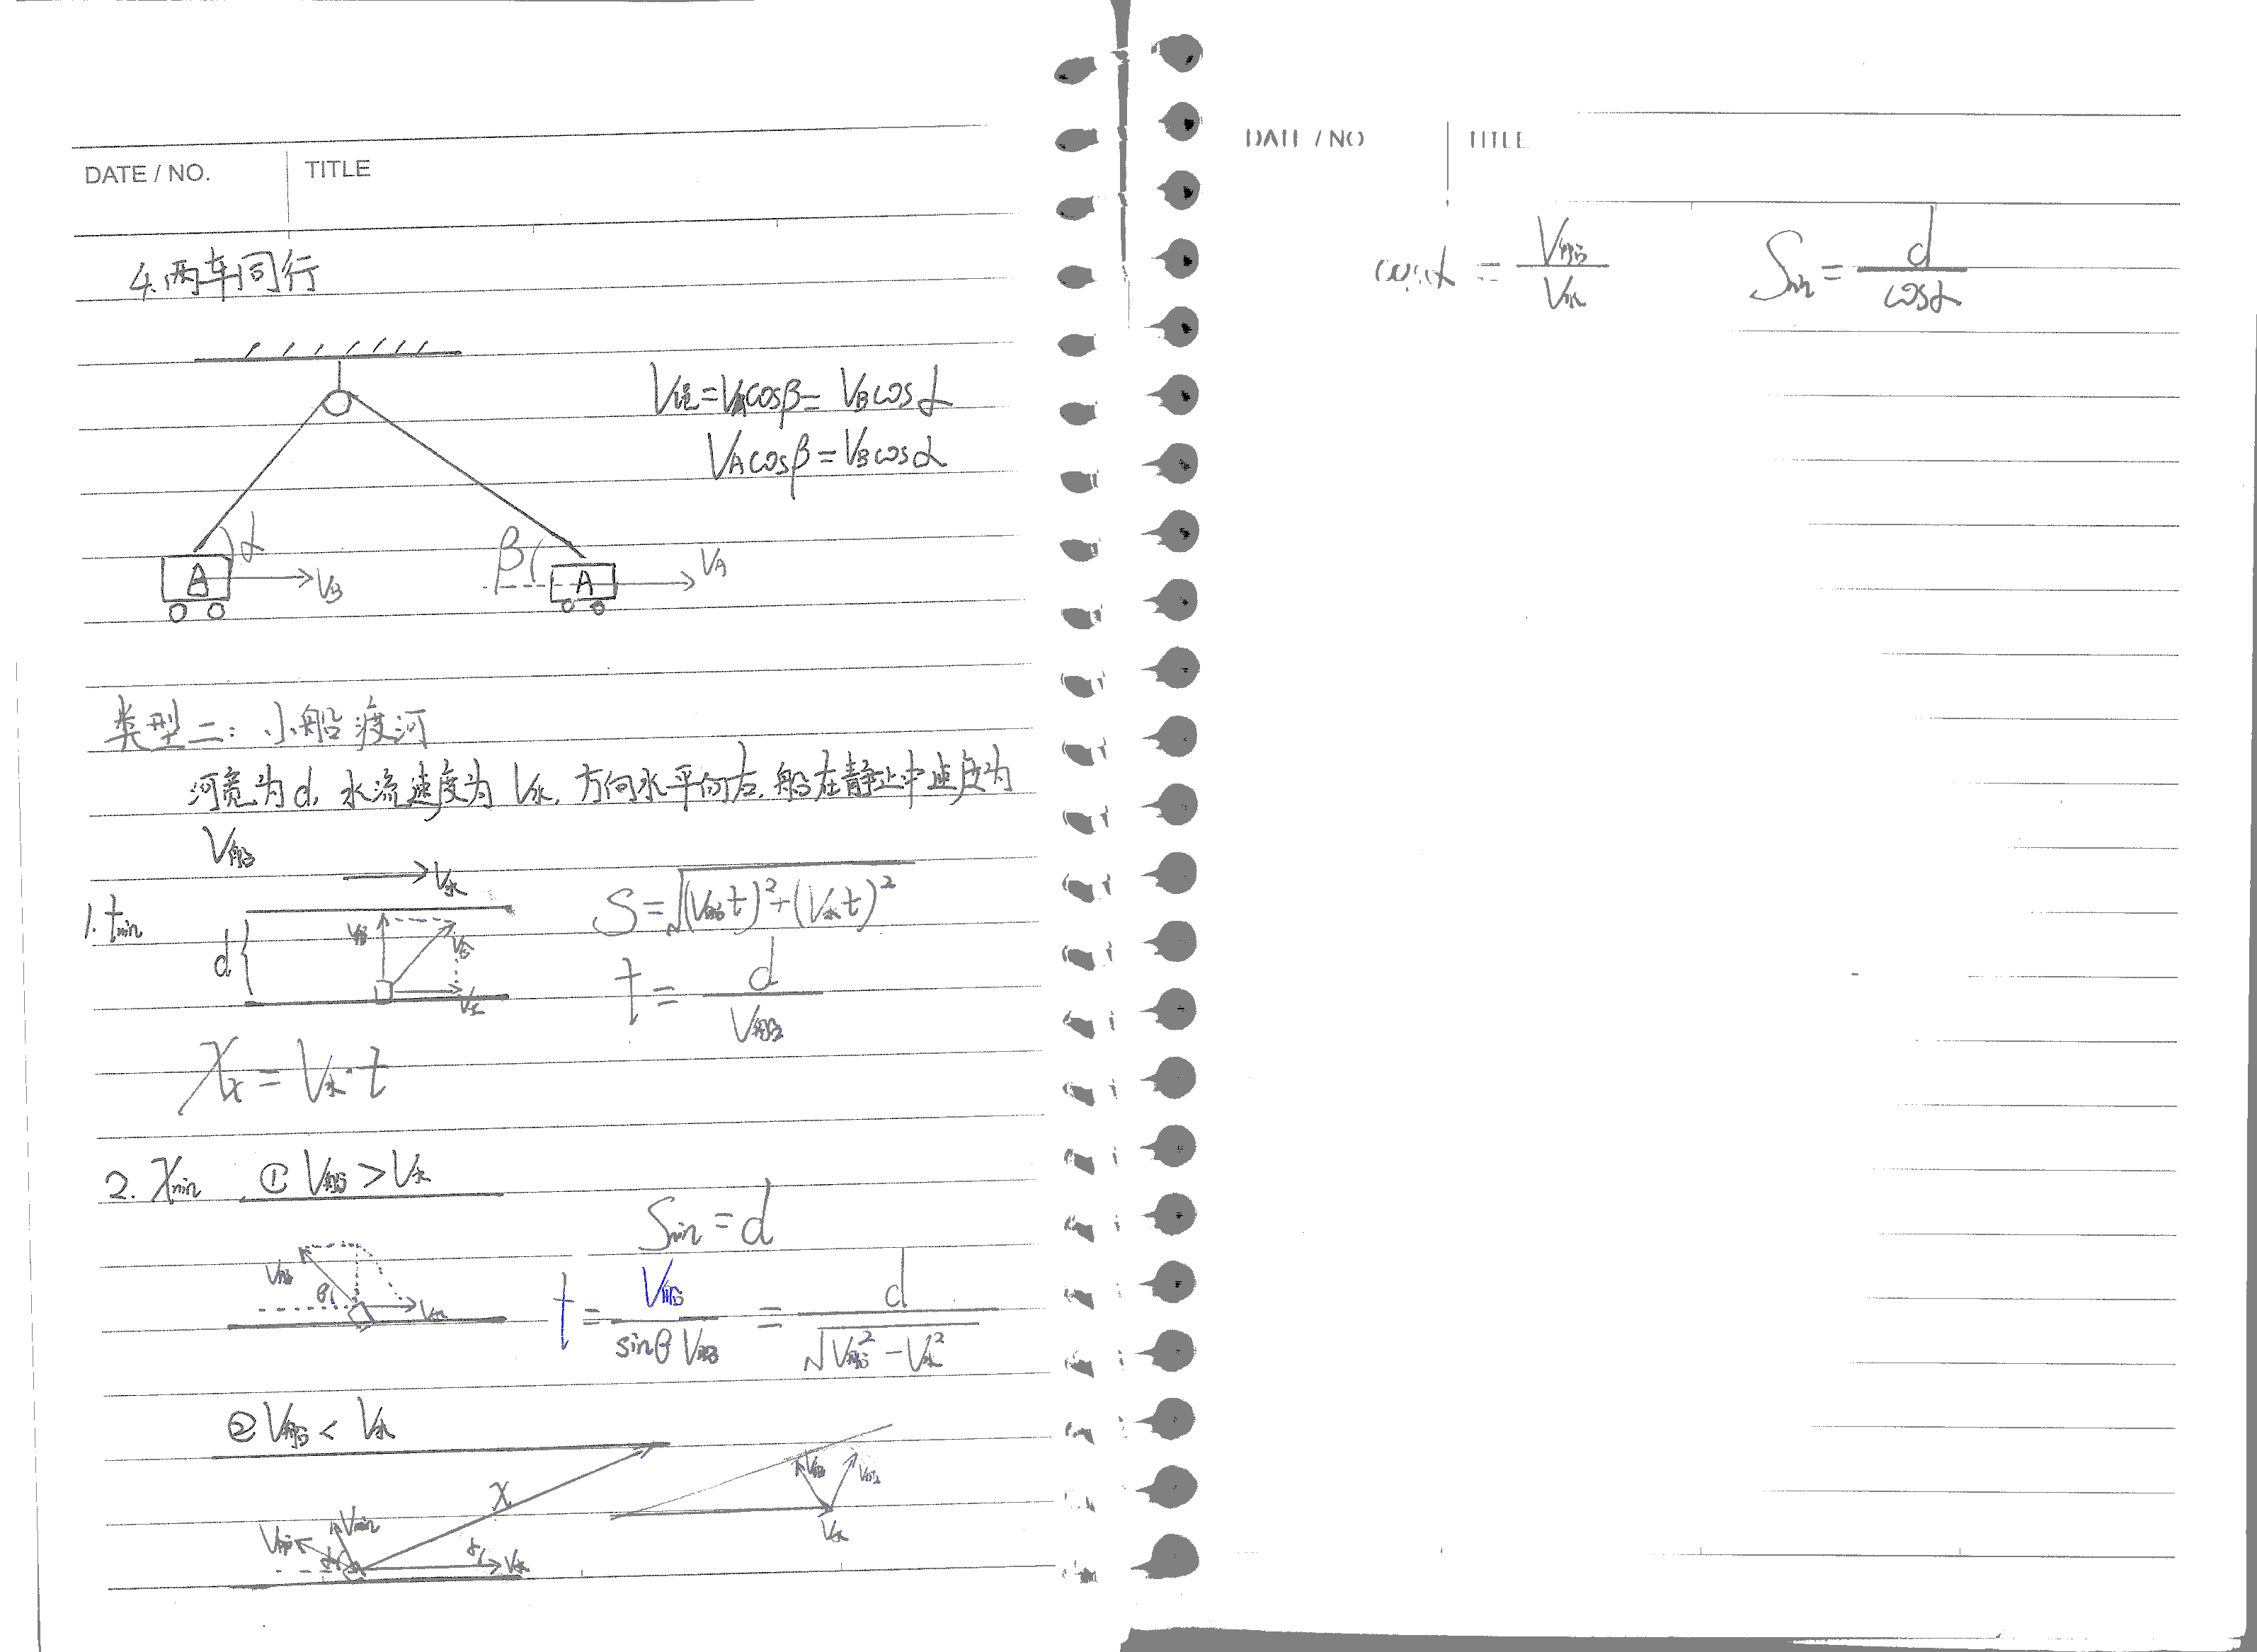 DATE / NO. TITLE
4.两车同行
V绳=VAcosβ= VBcosα
VAcosβ=VBcosα
α
β
A VB
A VA
类型二：小船渡河
河宽为d, 水流速度为 V水, 方向水平向右, 船在静止中速度为
V船
V水
1. tmin
d
V船 V合
V水
S=√(V船t)²+(V水t)²
t= d/V船
Xx = V水·t
2. Xmin ① V船>V水
Smin=d
V船 θ V水
t= V船/sinθ V船 = d/√V船²-V水²
② V船< V水
X
V船 Vmin α V水
V船 V船
V水
DATE / NO TITLE
cosα = V船/V水 Smin= d/cosα